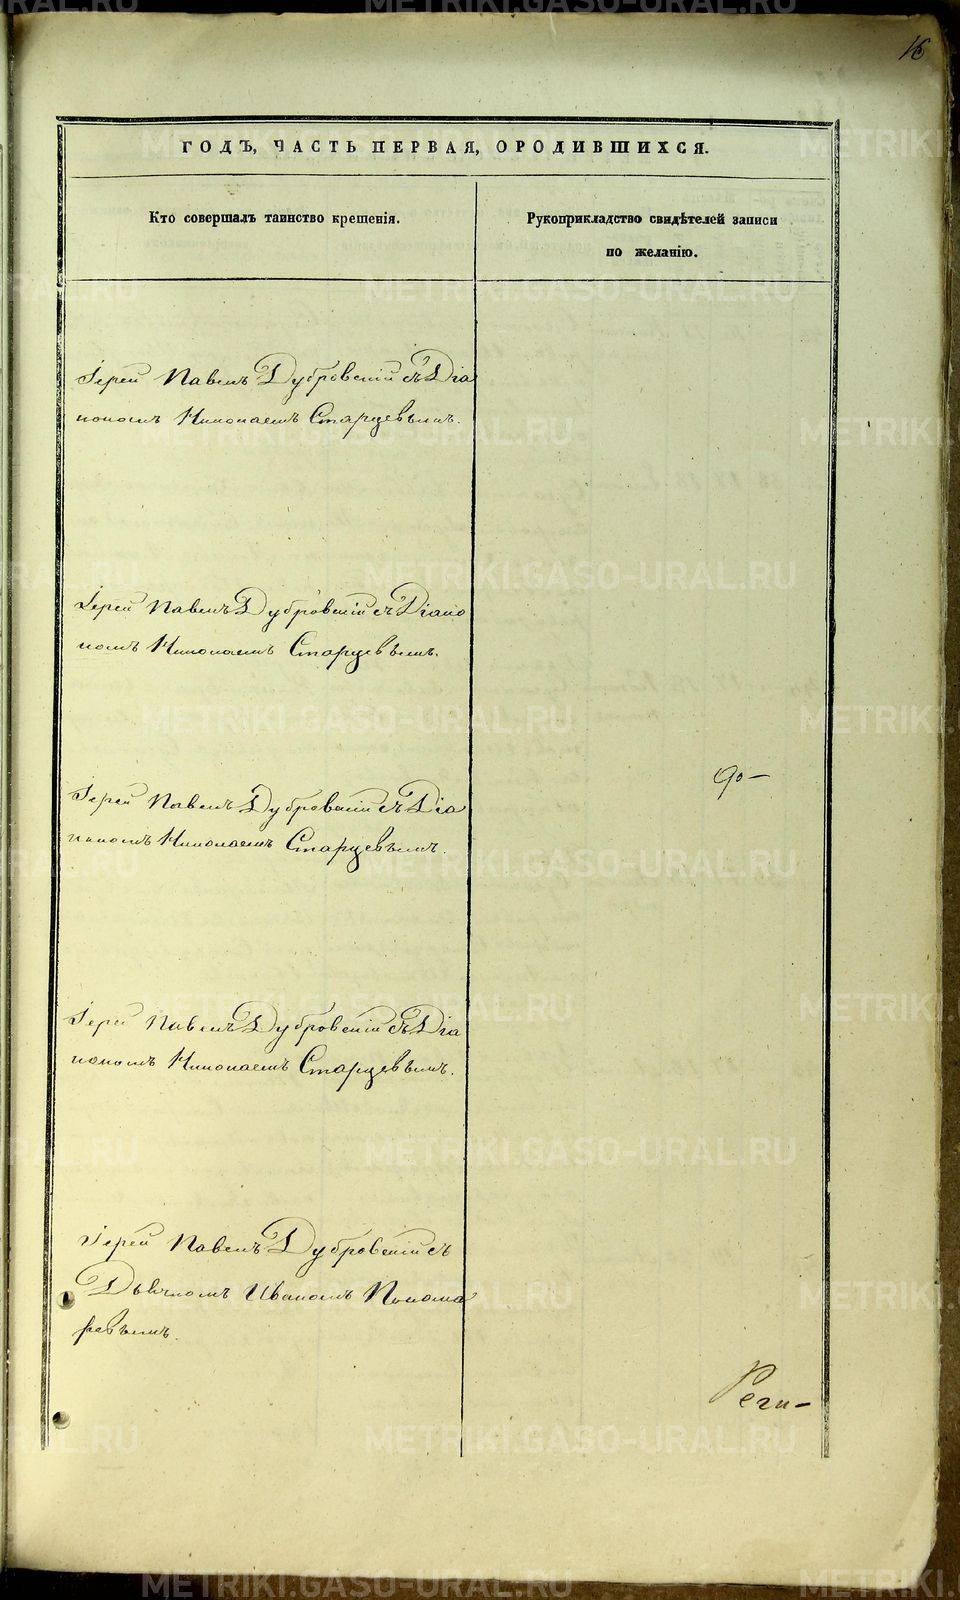 16
ГОДЪ, ЧАСТЬ ПЕРВАЯ, ОРОДИВШИХСЯ.
Кто совершалъ таинство крещенія.
Рукоприкладство свидѣтелей записи
по желанію.
Іерей Павелъ Дубровскій съ Діа
кономъ Николаемъ Старцевымъ.
Іерей Павелъ Дубровскій съ Діако
номъ Николаемъ Старцевымъ.
Іерей Павелъ Дубровскій съ Діа
кономъ Николаемъ Старцевымъ.
Іерей Павелъ Дубровскій съ Діа
кономъ Николаемъ Старцевымъ.
Іерей Павелъ Дубровскій съ
Дьячкомъ Иваномъ Понома
ревымъ.
METRIKI.GASO-URAL.RU